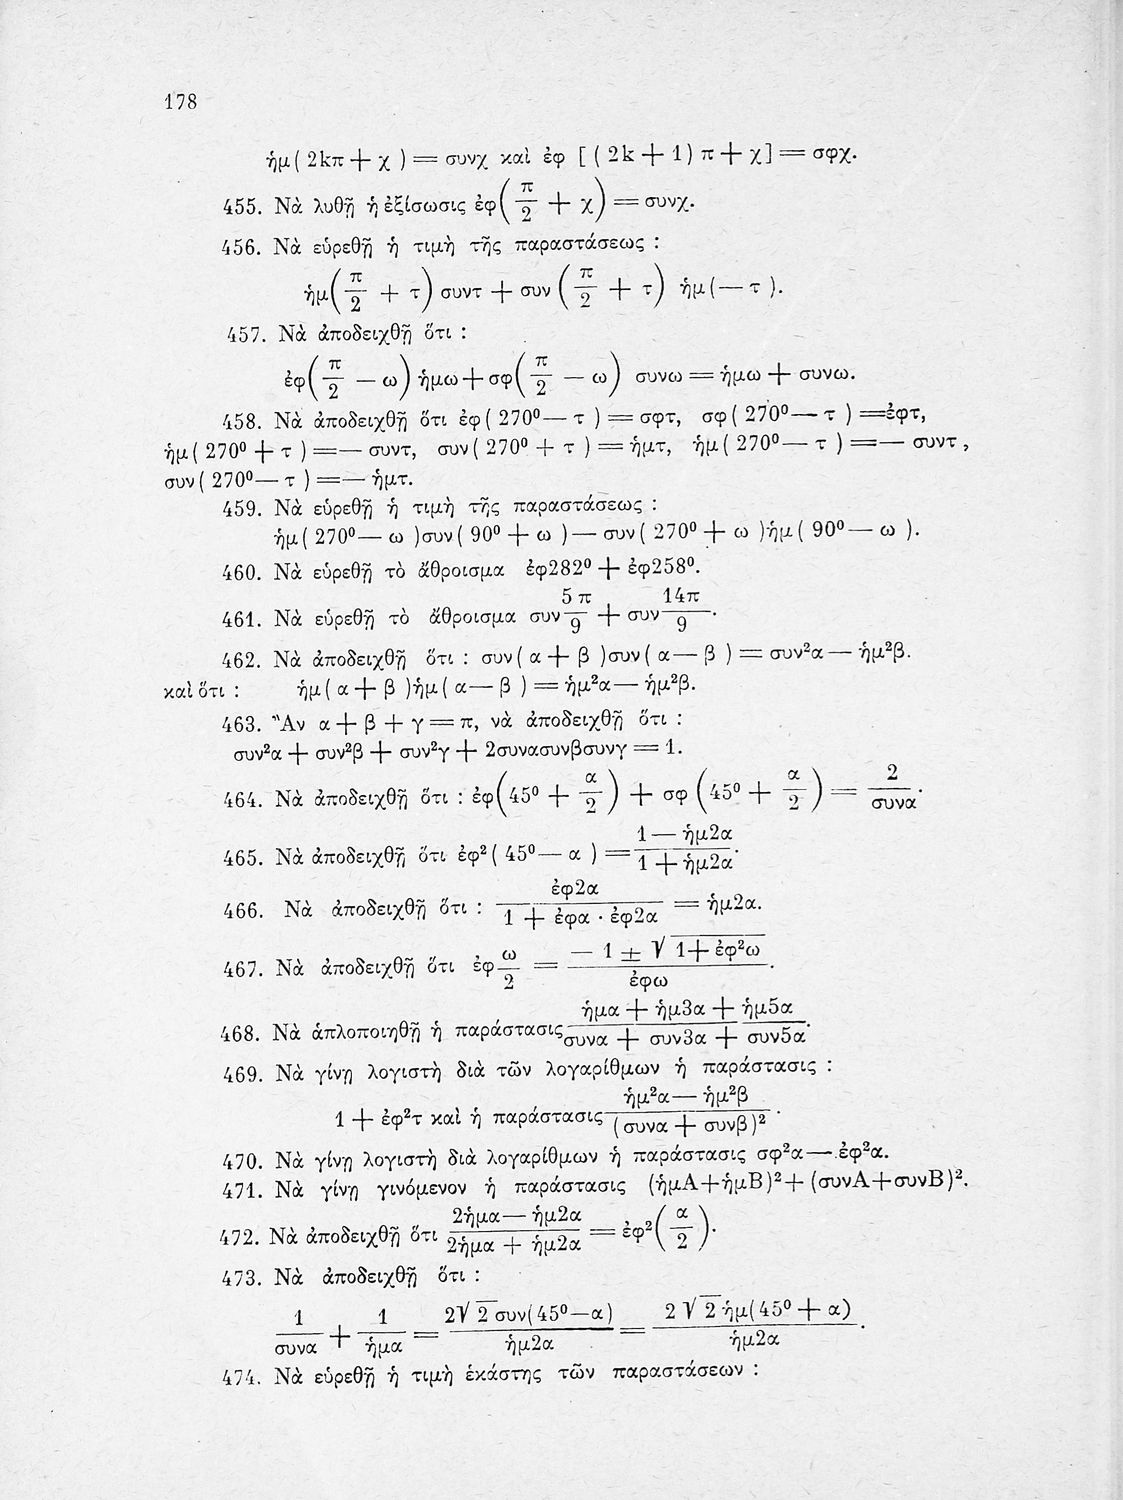 178
ἡμ( 2kπ + χ ) = συνχ καὶ ἐφ [ ( 2k + 1) π + χ] = σφχ.
455. Νὰ λυθῇ ἡ ἐξίσωσις ἐφ(π/2 + χ) = συνχ.
456. Νὰ εὑρεθῇ ἡ τιμὴ τῆς παραστάσεως :
ἡμ(π/2 + τ) συντ + συν (π/2 + τ) ἡμ(— τ ).
457. Νὰ ἀποδειχθῇ ὅτι :
ἐφ(π/2 — ω) ἡμω + σφ(π/2 — ω) συνω = ἡμω + συνω.
458. Νὰ ἀποδειχθῇ ὅτι ἐφ( 270⁰— τ ) = σφτ, σφ( 270⁰— τ ) =ἐφτ,
ἡμ( 270⁰ + τ ) =— συντ, συν( 270⁰ + τ ) = ἡμτ, ἡμ( 270⁰— τ ) =— συντ ,
συν( 270⁰— τ ) =— ἡμτ.
459. Νὰ εὑρεθῇ ἡ τιμὴ τῆς παραστάσεως :
ἡμ( 270⁰— ω )συν( 90⁰ + ω )— συν( 270⁰ + ω )ἡμ( 90⁰— ω ).
460. Νὰ εὑρεθῇ τὸ ἄθροισμα ἐφ282⁰ + ἐφ258⁰.
461. Νὰ εὑρεθῇ τὸ ἄθροισμα συν 5π/9 + συν 14π/9.
462. Νὰ ἀποδειχθῇ ὅτι : συν( α + β )συν( α— β ) = συν²α — ἡμ²β.
καὶ ὅτι : ἡμ( α + β )ἡμ( α— β ) = ἡμ²α— ἡμ²β.
463. Ἂν α + β + γ = π, νὰ ἀποδειχθῇ ὅτι :
συν²α + συν²β + συν²γ + 2συνασυνβσυνγ = 1.
464. Νὰ ἀποδειχθῇ ὅτι : ἐφ(45⁰ + α/2) + σφ (45⁰ + α/2) = 2/συνα.
465. Νὰ ἀποδειχθῇ ὅτι ἐφ²( 45⁰— α ) = (1 — ἡμ2α)/(1 + ἡμ2α).
466. Νὰ ἀποδειχθῇ ὅτι : ἐφ2α/(1 + ἐφα · ἐφ2α) = ἡμ2α.
467. Νὰ ἀποδειχθῇ ὅτι ἐφ ω/2 = (— 1 ± √(1+ ἐφ²ω))/ἐφω.
468. Νὰ ἁπλοποιηθῇ ἡ παράστασις (ἡμα + ἡμ3α + ἡμ5α)/(συνα + συν3α + συν5α).
469. Νὰ γίνῃ λογιστὴ διὰ τῶν λογαρίθμων ἡ παράστασις :
1 + ἐφ²τ καὶ ἡ παράστασις (ἡμ²α— ἡμ²β)/(συνα + συνβ)².
470. Νὰ γίνῃ λογιστὴ διὰ λογαρίθμων ἡ παράστασις σφ²α— ἐφ²α.
471. Νὰ γίνῃ γινόμενον ἡ παράστασις (ἡμΑ+ἡμΒ)²+ (συνΑ+συνΒ)².
472. Νὰ ἀποδειχθῇ ὅτι (2ἡμα— ἡμ2α)/(2ἡμα + ἡμ2α) = ἐφ²(α/2).
473. Νὰ ἀποδειχθῇ ὅτι :
1/συνα + 1/ἡμα = 2√2 συν(45⁰—α)/ἡμ2α = 2√2 ἡμ(45⁰ + α)/ἡμ2α.
474. Νὰ εὑρεθῇ ἡ τιμὴ ἑκάστης τῶν παραστάσεων :